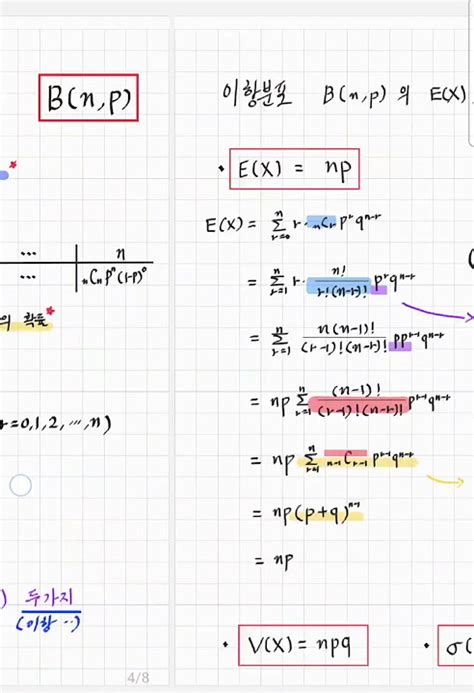 B(n,p)
... n
... ₙCₙpⁿ(1-p)⁰
의 확률
r=0,1,2,...,n)
) 두가지
(이항 ..)
4/8
이항분포 B(n,p) 의 E(X)
• E(X) = np
E(X) = Σ_{r=0}^{n} r·ₙCᵣ pʳqⁿ⁻ʳ
= Σ_{r=1}^{n} r· n!/(r!(n-r)!) pʳqⁿ⁻ʳ
= Σ_{r=1}^{n} n(n-1)!/((r-1)!(n-r)!) ppʳ⁻¹qⁿ⁻ʳ
= np Σ_{r=1}^{n} (n-1)!/((r-1)!(n-r)!) pʳ⁻¹qⁿ⁻ʳ
= np Σ_{r=1}^{n} ₙ₋₁Cᵣ₋₁ pʳ⁻¹qⁿ⁻ʳ
= np(p+q)ⁿ⁻¹
= np
• V(X) = npq
• σ(